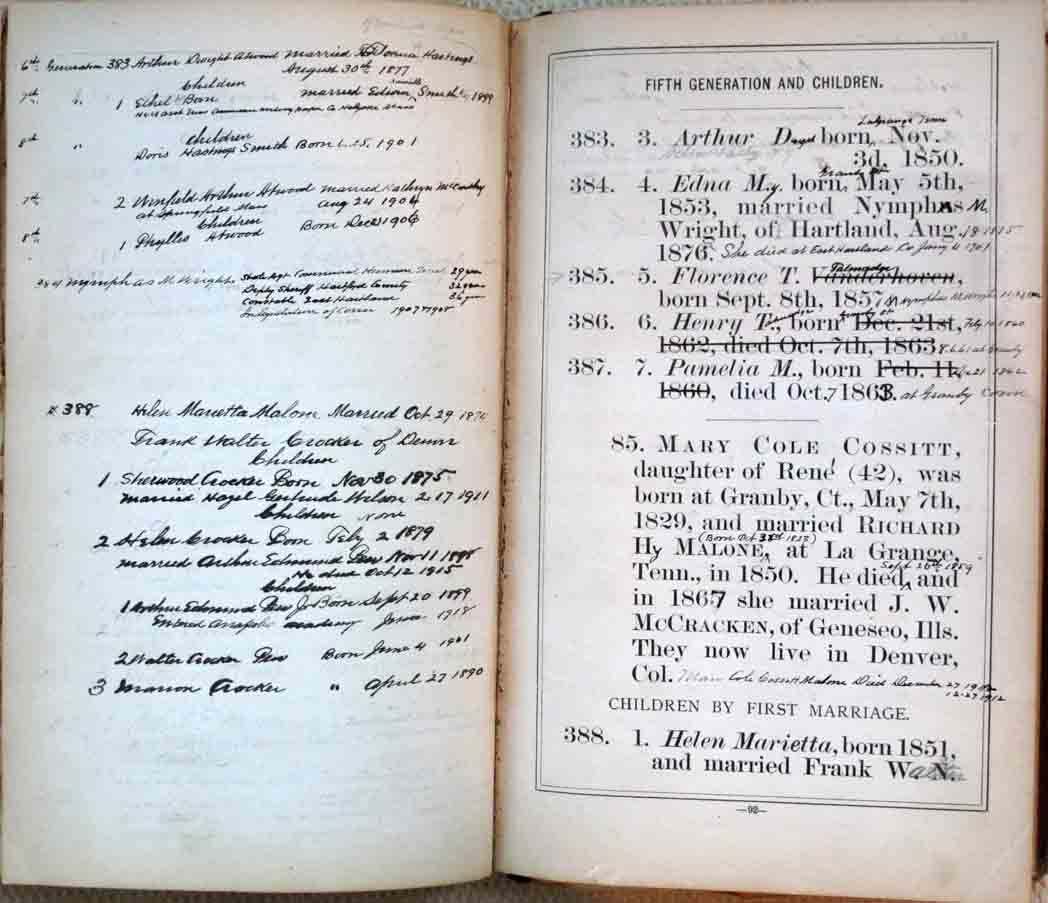 6th Generation 383 Arthur Dwight Atwood married Hastings
August 30th 1877
Children
7th " 1 Ethel Born married Edson Smith 1899
8th " Children
Doris Hastings Smith Born 1901
7th 2 Winfield Arthur Atwood married Kathryn McCarthy
at Springfield Mass Aug 24 1904
Children
8th 1 Phylles Atwood Born Dec 1906
384 Nymphas M Wright
29 years
Deputy Sheriff Hartford County
Constable East Hartland 36 years
1907-1908
x 388 Helen Marietta Malone Married Oct 29
Frank Walter Crocker of Denver
Children
1 Sherwood Crocker Born Nov 30 1875
married Hazel Gertrude Wilson 2 17 1911
Children None
2 Helen Crocker Born Feby 2 1879
married Arthur Edmund Nov 11 1898
He died Oct 12 1915
Children
1 Arthur Edmund Jr Born Sept 20 1899
Entered Annapolis academy June 1918
2 Walter Crocker Born June 4 1901
3 Marion Crocker " April 27 1890
FIFTH GENERATION AND CHILDREN.
Lagrange Tenn
383. 3. Arthur D born, Nov.
3d, 1850.
384. 4. Edna M., born, May 5th,
1853, married Nymphas M.
Wright, of Hartland, Aug.
1876. She died at East Hartland
385. 5. Florence T. Vanderhoven,
born Sept. 8th, 1857
386. 6. Henry T., born Dec. 21st,
1862, died Oct. 7th, 1863
387. 7. Pamelia M., born Feb. 11,
1860, died Oct. 7 1863. at Granby Conn
85. MARY COLE COSSITT,
daughter of René (42), was
born at Granby, Ct., May 7th,
1829, and married RICHARD
Hy MALONE, at La Grange,
Sept 26th 1859
Tenn., in 1850. He died, and
in 1867 she married J. W.
MCCRACKEN, of Geneseo, Ills.
They now live in Denver,
Col. Mary Cole Cossitt Malone Died December 27
12-27-1912
CHILDREN BY FIRST MARRIAGE.
388. 1. Helen Marietta, born 1851,
and married Frank W. N.
—92—